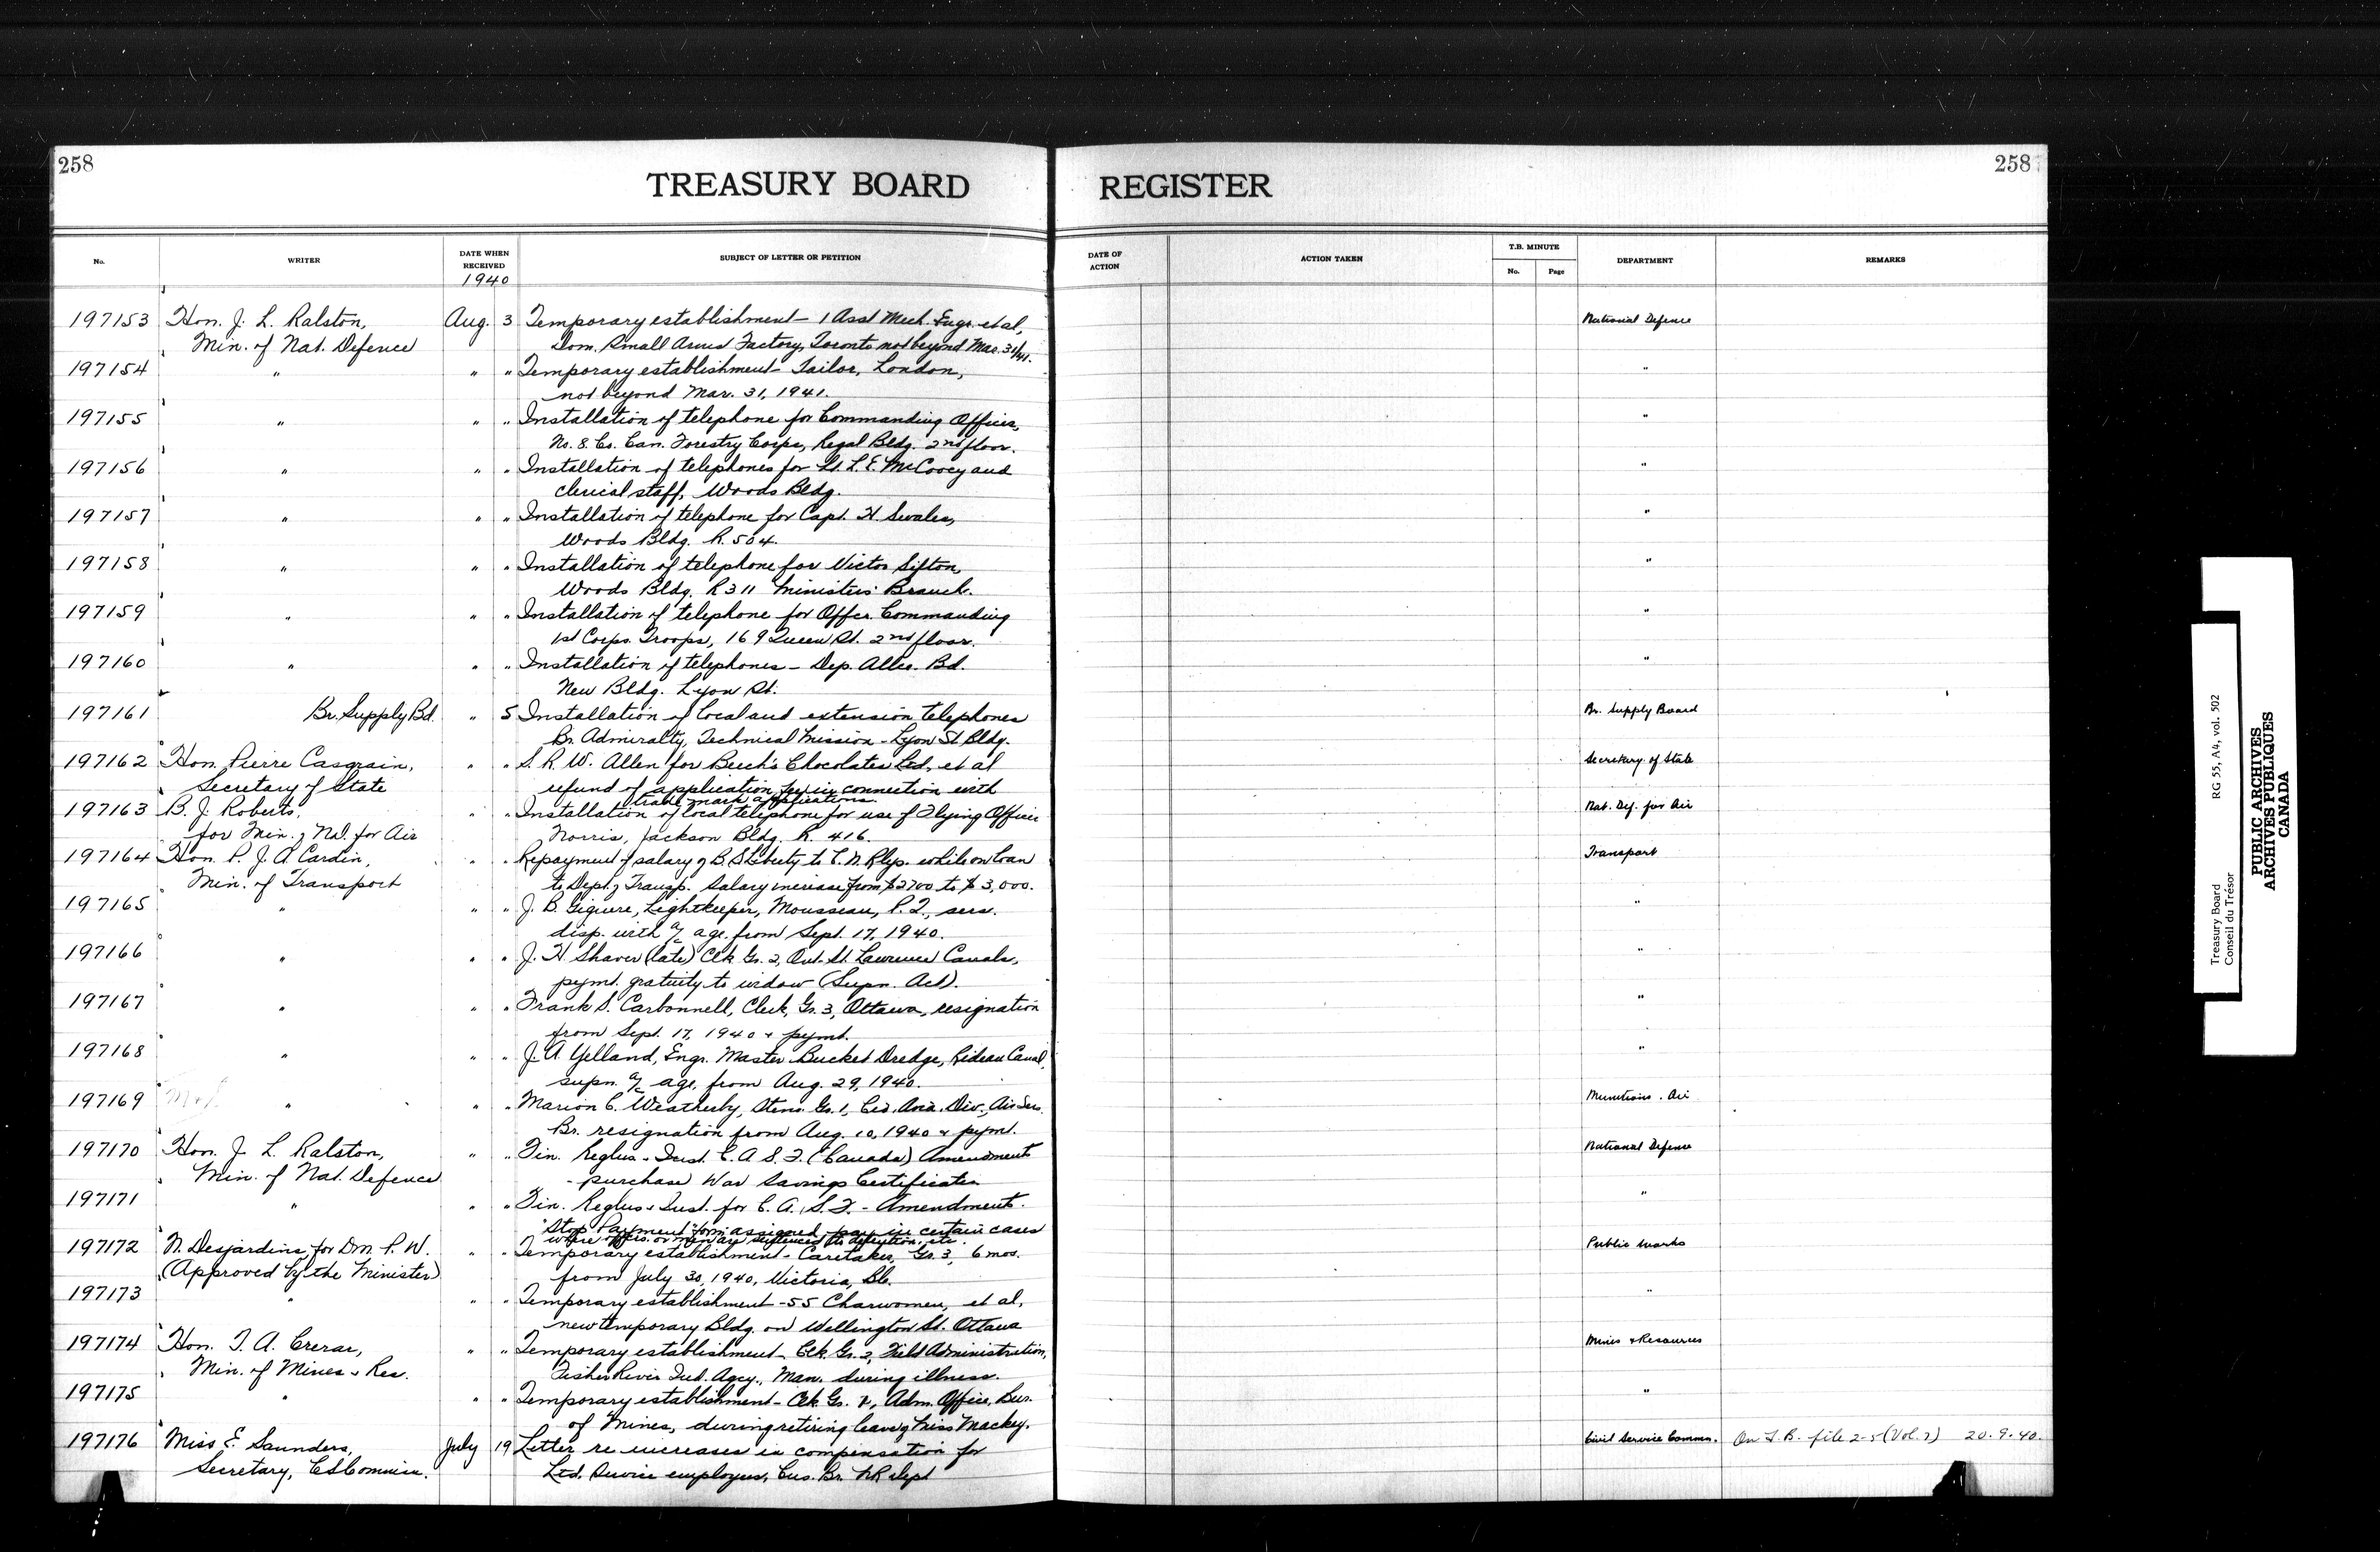 258
258
TREASURY BOARD REGISTER
No. WRITER DATE WHEN RECEIVED SUBJECT OF LETTER OR PETITION DATE OF ACTION ACTION TAKEN T.B. MINUTE No. Page DEPARTMENT REMARKS
1940
197153 Hon. J. L. Ralston, Aug. 3 Temporary establishment - 1 Asst Mech. Engr. et al, National Defence
Min. of Nat. Defence Dom. Small Arms Factory, Toronto not beyond Mar. 31/41.
197154 " " " Temporary establishment - Tailor, London, "
not beyond Mar. 31, 1941.
197155 " " " Installation of telephone for Commanding Officer, "
No. 8 Co. Can. Forestry Corps, Regal Bldg. 2nd floor.
197156 " " " Installation of telephones for Lt. L. E. McCooey and "
clerical staff, Woods Bldg.
197157 " " " Installation of telephone for Capt. H. Swales, "
Woods Bldg. R. 504.
197158 " " " Installation of telephone for Victor Sifton, "
Woods Bldg. R 311 Ministers' Branch.
197159 " " " Installation of telephone for Offcr. Commanding "
1st Corps Troops, 169 Queen St. 2nd floor.
197160 " " " Installation of telephones - Dep. Allce. Bd. "
New Bldg. Lyon St.
197161 Br. Supply Bd. " 5 Installation of local and extension telephones Br. Supply Board
Br. Admiralty, Technical Mission - Lyon St Bldg.
197162 Hon. Pierre Casgrain, " " S. R. W. Allen for Beech's Chocolates Ltd, et al Secretary of State
Secretary of State refund of application fee in connection with
trade mark applications.
197163 B. J. Roberts, " " Installation of local telephone for use of Flying Officer Nat. Def. for Air
for Min. of Nd. for Air Norris, Jackson Bldg. R. 416.
197164 Hon. P. J. A. Cardin, " " Repayment of salary of B. S Liberty to C. N. Rlys. while on loan Transport
Min. of Transport to Dept. of Transp. Salary increase from $2700 to $3,000.
197165 " " " J. B. Giguere, Lightkeeper, Mousseau, P.Q., serv. "
disp. with a/c age from Sept. 17, 1940.
197166 " " " J. H Shaver (late) Clk Gr. 2, Ont. St. Lawrence Canals, "
pymt. gratuity to widow (Supn. Act).
197167 " " " Frank S. Carbonnell, Clerk, Gr. 3, Ottawa, resignation "
from Sept. 17, 1940 & pymt.
197168 " " " J. A. Yelland, Engr. Master Bucket Dredge, Rideau Canal, "
supn. a/c age, from Aug. 29, 1940.
197169 " " " Marion C. Weatherby, Steno. Gr. 1, Civ. Avia. Div., Air Serv. Munitions. Air
Br. resignation from Aug. 10, 1940 & pymt.
197170 Hon. J. L. Ralston, " " Fin. Reglns & Inst. C. A. S. F. (Canada) Amendment National Defence
Min. of Nat. Defence - purchase War Savings Certificates
197171 " " " Fin. Reglns & Inst. for C. A. S. F. - Amendments. "
"Stop Payment" from assigned pay in certain cases
where offcrs. or men are sentenced to detention, etc.
197172 N. Desjardins, for Dm. P. W. " " Temporary establishment - Caretaker, Gr. 3, 6 mos. Public Works
(Approved by the Minister) from July 30, 1940, Victoria, B.C.
197173 " " " Temporary establishment - 55 Charwomen, et al, "
new temporary Bldg. on Wellington St. Ottawa
197174 Hon. T. A. Crerar, " " Temporary establishment - Clk. Gr. 2, Field Administration, Mines & Resources
Min. of Mines & Res. Fisher River Ind. Agcy., Man. during illness.
197175 " " " Temporary establishment - Clk. Gr. Adm. Office, Bur. "
of Mines, during retiring leave of Miss Mackey.
197176 Miss E. Saunders, July 19 Letter re increases in compensation for Civil Service Commn. On T. B. file 2-5 (Vol. 2) 20.9.40.
Secretary, CSCommission. Ltd. Service employees, Cus. Br. NR dept
PUBLIC ARCHIVES
ARCHIVES PUBLIQUES
CANADA
Treasury Board RG 55, A4, vol. 502
Conseil du Trésor